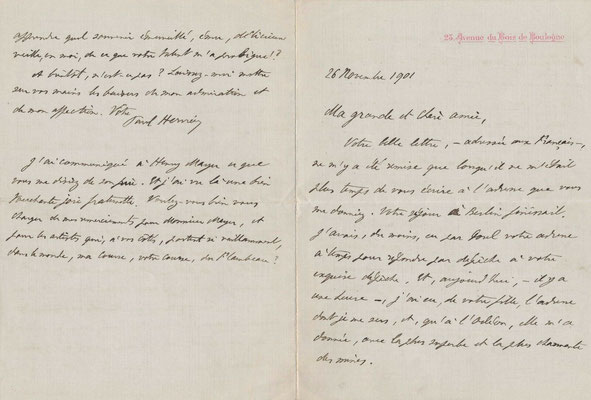 23, Avenue du Bois de Boulogne
26 Novembre 1901
Ma grande et chère amie,
Votre belle lettre, – adressée aux Français –,
ne m'y a été remise que lorsqu'il ne m'était
plus temps de vous écrire à l'adresse que vous
me donniez. Votre séjour à Berlin finissait.
J'avais, du moins, eu par Porel votre adresse
à temps pour répondre par dépêche à votre
exquise dépêche. Et, aujourd'hui, – il y a
une heure –, j'ai eu, de votre fille, l'adresse
dont je me sers, et, qu'à l'Odéon, elle m'a
donnée, avec la plus superbe et la plus charmante
des mines.
apprendre quel souvenir émerveillé, ému, délicieux
veille, en moi, de ce que votre talent m'a prodigué!
A bientôt, n'est-ce pas? Laissez-moi mettre
sur vos mains les baisers de mon admiration et
de mon affection. Votre
Paul Hervieu
J'ai communiqué à Henry Mayer ce que
vous me disiez de son frère. Et j'ai vu là une bien
touchante joie fraternelle. Voulez-vous bien vous
charger de mes remerciements pour Monsieur Mayer, et
pour les artistes qui, à vos côtés, portent si vaillamment,
dans le monde, ma Course, votre Course, du Flambeau?